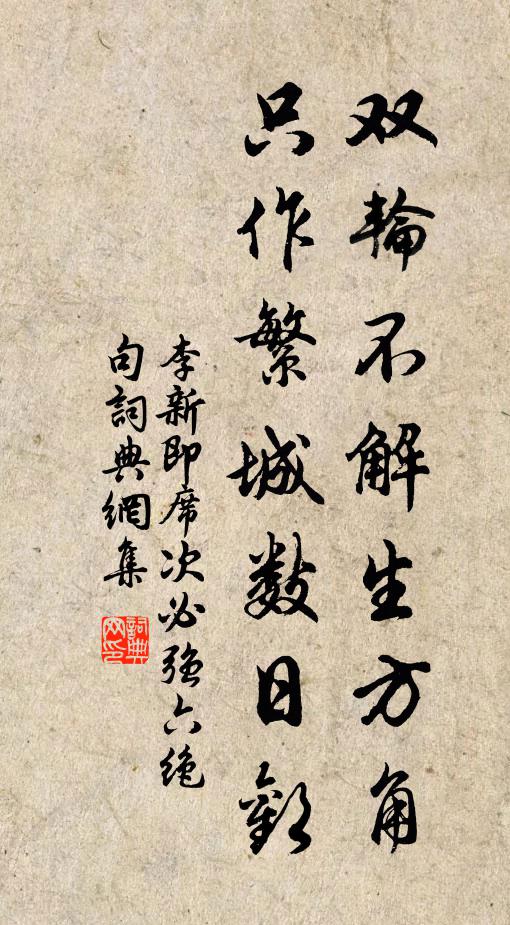 双輪不解生方角
只作繁城数日歡
李新即席次必强六絶
句詞典網集
詞典
网印